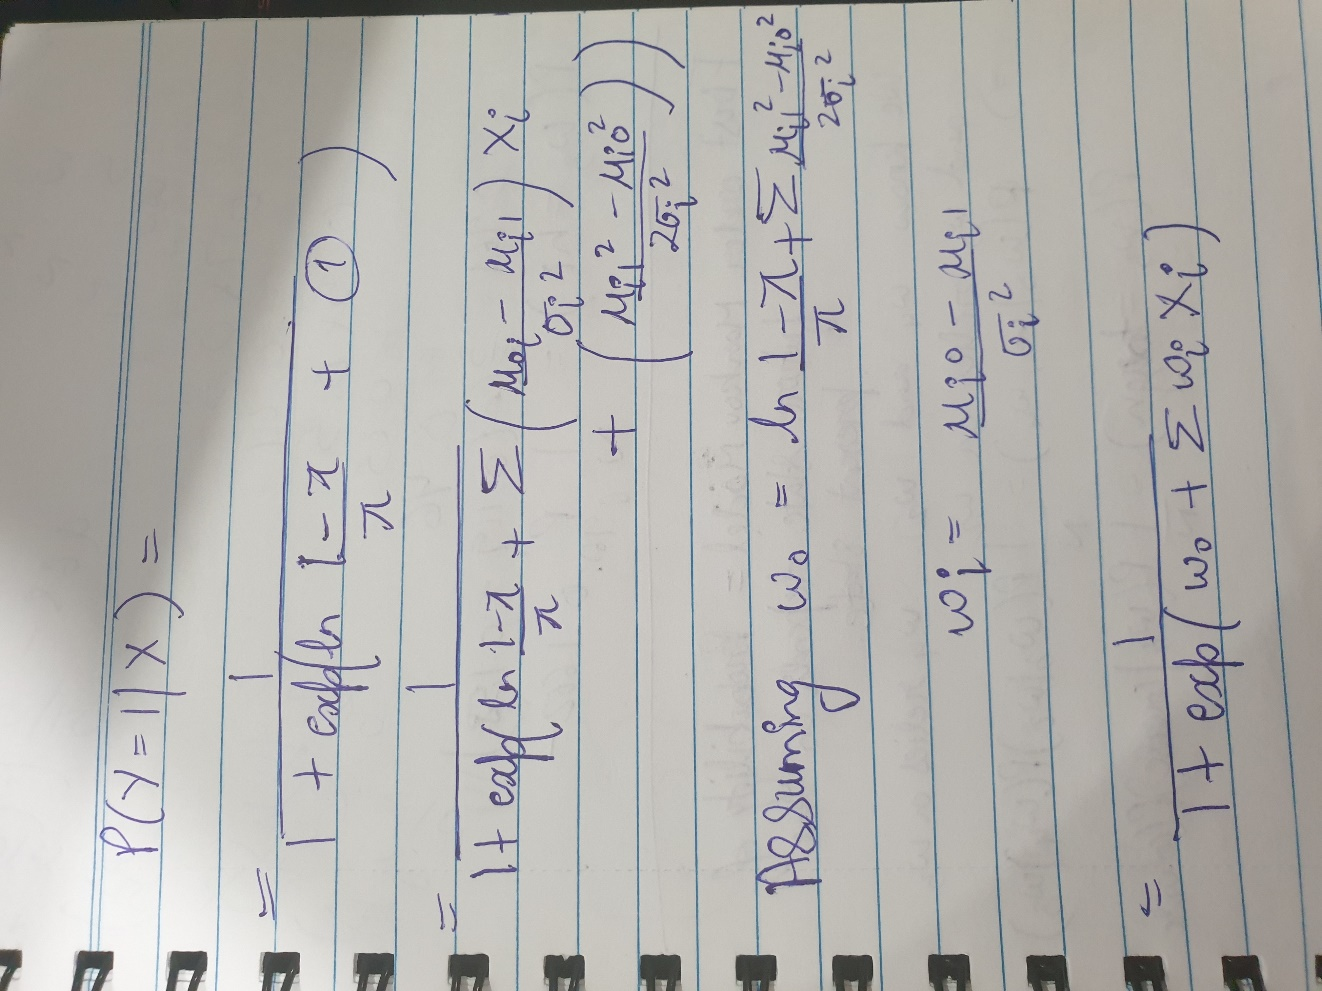 P(Y=1|X) =
= 1 / (1 + exp(ln (1-π)/π + ①))
= 1 / (1 + exp(ln (1-π)/π + Σ ((μ₀ᵢ - μᵢ₁)/σᵢ²) Xᵢ
+ ((μᵢ₁² - μᵢ₀²)/2σᵢ²)))
Assuming w₀ = ln (1-π)/π + Σ (μᵢ₁² - μᵢ₀²)/2σᵢ²
wᵢ = (μᵢ₀ - μᵢ₁)/σᵢ²
= 1 / (1 + exp(w₀ + Σ wᵢ Xᵢ))